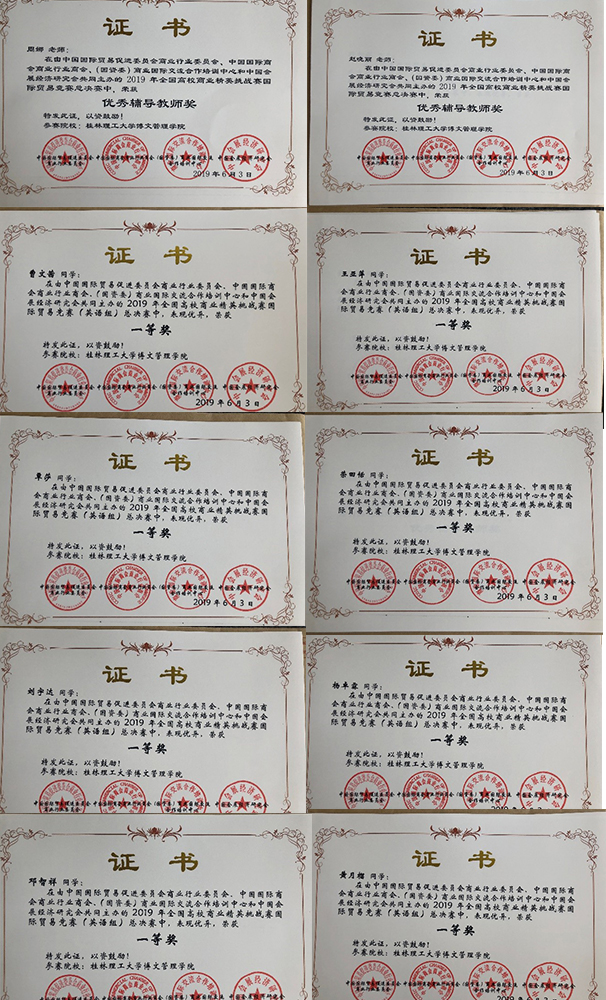 证书
周娜 老师：
在由中国国际贸易促进委员会商业行业委员会、中国国际商
会商业行业商会、(国资委)商业国际交流合作培训中心和中国会
展经济研究会共同主办的 2019 年全国高校商业精英挑战赛国
际贸易竞赛总决赛中，荣获
优秀辅导教师奖
特发此证，以资鼓励！
参赛院校：桂林理工大学博文管理学院
2019 年 6 月 3 日
证书
赵晓丽 老师：
在由中国国际贸易促进委员会商业行业委员会、中国国际商
会商业行业商会、(国资委)商业国际交流合作培训中心和中国会
展经济研究会共同主办的 2019 年全国高校商业精英挑战赛国
际贸易竞赛总决赛中，荣获
优秀辅导教师奖
特发此证，以资鼓励！
参赛院校：桂林理工大学博文管理学院
2019 年 6 月 3 日
证书
曹文茜 同学：
在由中国国际贸易促进委员会商业行业委员会、中国国际商
会商业行业商会、(国资委)商业国际交流合作培训中心和中国会
展经济研究会共同主办的 2019 年全国高校商业精英挑战赛国
际贸易竞赛（英语组）总决赛中，表现优异，荣获
一等奖
特发此证，以资鼓励！
参赛院校：桂林理工大学博文管理学院
2019 年 6 月 3 日
证书
王亚萍 同学：
在由中国国际贸易促进委员会商业行业委员会、中国国际商
会商业行业商会、(国资委)商业国际交流合作培训中心和中国会
展经济研究会共同主办的 2019 年全国高校商业精英挑战赛国
际贸易竞赛（英语组）总决赛中，表现优异，荣获
一等奖
特发此证，以资鼓励！
参赛院校：桂林理工大学博文管理学院
2019 年 6 月 3 日
证书
覃莎 同学：
在由中国国际贸易促进委员会商业行业委员会、中国国际商
会商业行业商会、(国资委)商业国际交流合作培训中心和中国会
展经济研究会共同主办的 2019 年全国高校商业精英挑战赛国
际贸易竞赛（英语组）总决赛中，表现优异，荣获
一等奖
特发此证，以资鼓励！
参赛院校：桂林理工大学博文管理学院
2019 年 6 月 3 日
证书
同学：
在由中国国际贸易促进委员会商业行业委员会、中国国际商
会商业行业商会、(国资委)商业国际交流合作培训中心和中国会
展经济研究会共同主办的 2019 年全国高校商业精英挑战赛国
际贸易竞赛（英语组）总决赛中，表现优异，荣获
一等奖
特发此证，以资鼓励！
参赛院校：桂林理工大学博文管理学院
2019 年 6 月 3 日
证书
刘宇达 同学：
在由中国国际贸易促进委员会商业行业委员会、中国国际商
会商业行业商会、(国资委)商业国际交流合作培训中心和中国会
展经济研究会共同主办的 2019 年全国高校商业精英挑战赛国
际贸易竞赛（英语组）总决赛中，表现优异，荣获
一等奖
特发此证，以资鼓励！
参赛院校：桂林理工大学博文管理学院
证书
杨卓霖 同学：
在由中国国际贸易促进委员会商业行业委员会、中国国际商
会商业行业商会、(国资委)商业国际交流合作培训中心和中国会
展经济研究会共同主办的 2019 年全国高校商业精英挑战赛国
际贸易竞赛（英语组）总决赛中，表现优异，荣获
一等奖
特发此证，以资鼓励！
参赛院校：桂林理工大学博文管理学院
证书
邓智祥 同学：
在由中国国际贸易促进委员会商业行业委员会、中国国际商
会商业行业商会、(国资委)商业国际交流合作培训中心和中国会
展经济研究会共同主办的 2019 年全国高校商业精英挑战赛国
际贸易竞赛（英语组）总决赛中，表现优异，荣获
一等奖
特发此证，以资鼓励！
参赛院校：桂林理工大学博文管理学院
证书
黄月榴 同学：
在由中国国际贸易促进委员会商业行业委员会、中国国际商
会商业行业商会、(国资委)商业国际交流合作培训中心和中国会
展经济研究会共同主办的 2019 年全国高校商业精英挑战赛国
际贸易竞赛（英语组）总决赛中，表现优异，荣获
一等奖
特发此证，以资鼓励！
参赛院校：桂林理工大学博文管理学院